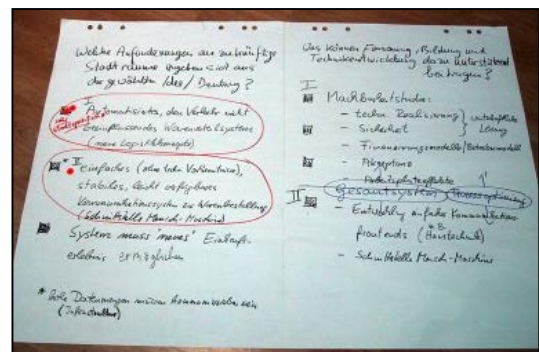 Welche Anforderungen an zukünftige
Stadträume ergeben sich aus
der gewählten Idee / Deutung?
I
Automatisiertes, den Verkehr nicht
beeinflussendes Warenverteilsystem
(neue Logistikkonzepte)
* II
einfaches (ohne tech. Vorkenntnisse),
stabiles, leicht verfügbares
Kommunikationssystem zur Warenbestellung
(Schnittstelle Mensch-Maschine)
System muss "neues" Einkaufs-
erlebnis ermöglichen
* hohe Datenmengen müssen kommunizierbar sein
(Infrastruktur)
Was können Forschung, Bildung und
Technikentwicklung dazu unterstützend
beitragen?
I
Machbarkeitsstudie:
- techn. Realisierung
- Sicherheit
- Finanzierungsmodelle / Betreibermodell
- Akzeptanz
Gesamtsystem
II
- Entwicklung einfacher Kommunikations-
frontends (z.B. Haustechnik)
- Schnittstelle Mensch-Maschine